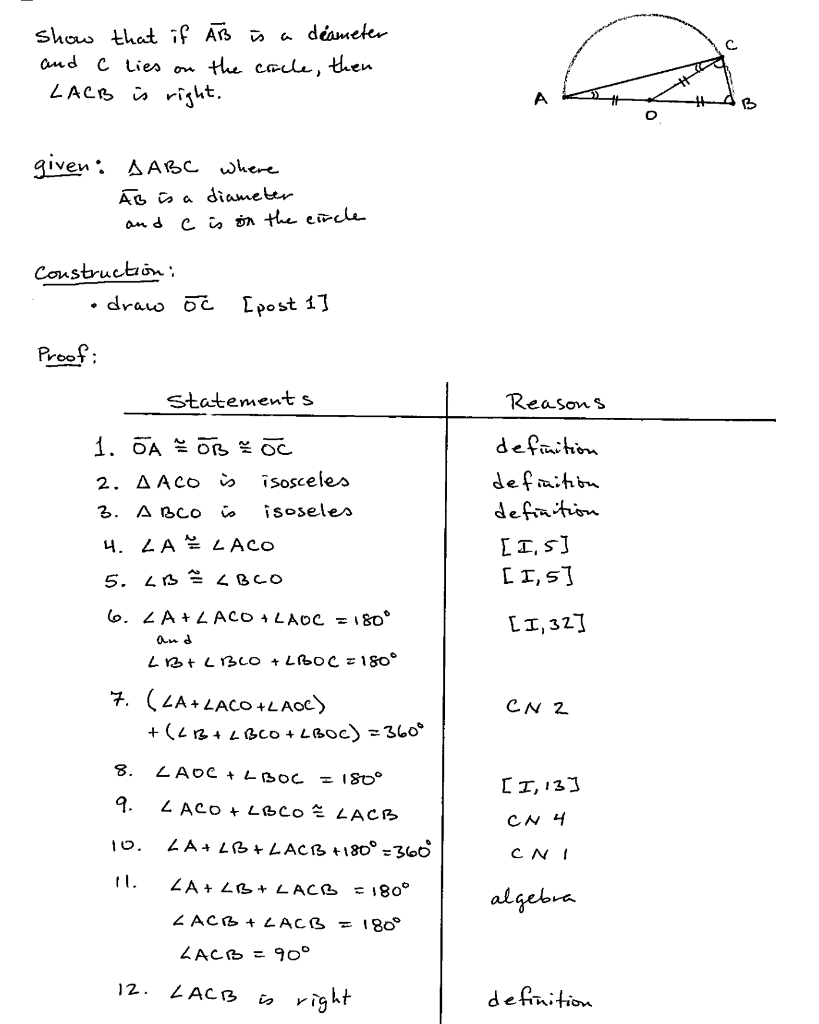 Show that if A̅B̅ is a diameter
and C lies on the circle, then
∠ACB is right.
C
A
O
B
given: △ABC where
A̅B̅ is a diameter
and C is on the circle
Construction:
• draw O̅C̅ [post 1]
Proof:
Statements Reasons
1. O̅A̅ ≅ O̅B̅ ≅ O̅C̅ definition
2. △ACO is isosceles definition
3. △BCO is isoseles definition
4. ∠A ≅ ∠ACO [I,5]
5. ∠B ≅ ∠BCO [I,5]
6. ∠A + ∠ACO + ∠AOC = 180° [I,32]
and
∠B + ∠BCO + ∠BOC = 180°
7. (∠A + ∠ACO + ∠AOC) CN 2
+ (∠B + ∠BCO + ∠BOC) = 360°
8. ∠AOC + ∠BOC = 180° [I,13]
9. ∠ACO + ∠BCO ≅ ∠ACB CN 4
10. ∠A + ∠B + ∠ACB + 180° = 360° CN 1
11. ∠A + ∠B + ∠ACB = 180° algebra
∠ACB + ∠ACB = 180°
∠ACB = 90°
12. ∠ACB is right definition